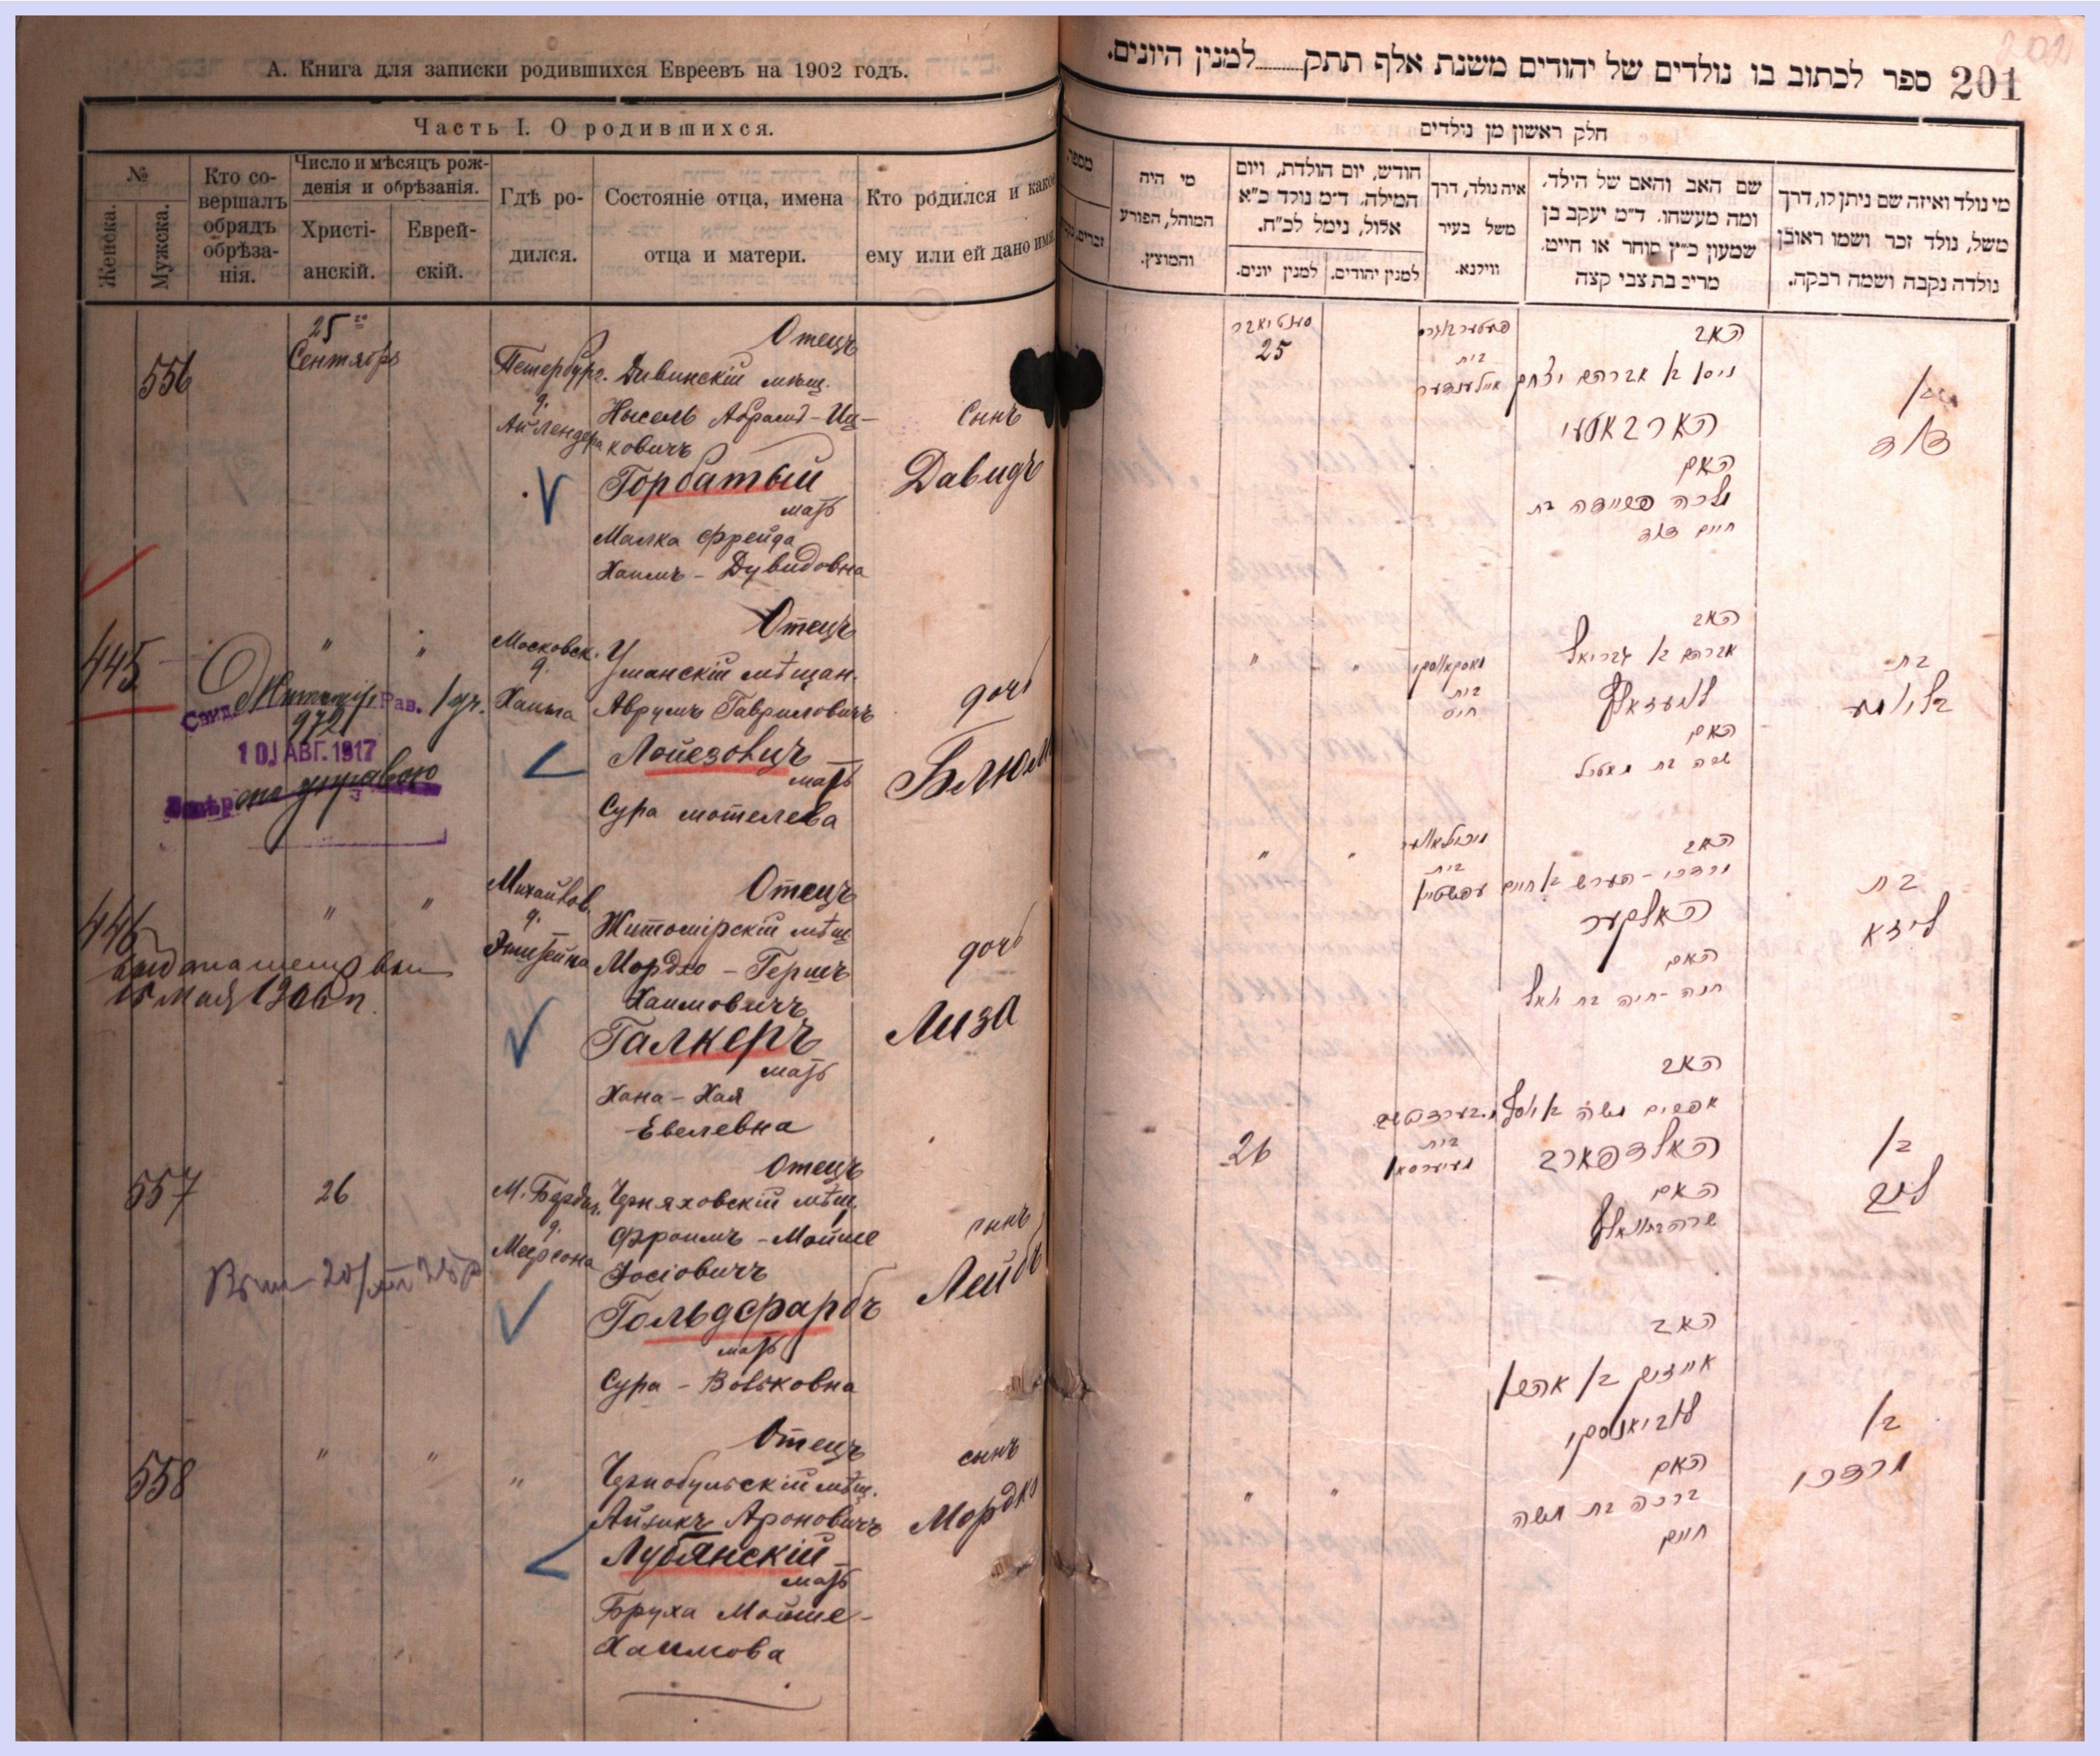 А. Книга для записки родившихся Евреевъ на 1902 годъ.
Часть I. О родившихся.
№
Женска.
Мужска.
Кто со-
вершалъ
обрядъ
обрѣза-
нія.
Число и мѣсяцъ рож-
денія и обрѣзанія.
Христі-
анскій.
Еврей-
скій.
Гдѣ ро-
дился.
Состояніе отца, имена
отца и матери.
Кто родился и какое
ему или ей дано имя.
556
25го
Сентября
Петербург.
д.
Айлендера
Отецъ
Дивинскій мѣщ.
Нысель Абрамъ-Иц-
ковичъ
Горбатый
мать
Малка Фрейда
Хаимъ-Дувидовна
сынъ
Давидъ
445
"
"
Московск.
д.
Хаита
Отецъ
Уманскій мѣщан.
Аврумъ Гавриловичъ
Лойезовицъ
мать
Сура мотелева
дочь
Блюма
Свид.
Рав.
972
10 АВГ. 1917
446
"
"
15 мая 1906 г.
Михайлов.
д.
Эпштейна
Отецъ
Житомірскій мѣщ
Мордко-Гершъ
Хаимовичъ
Галкеръ
мать
Хана-Хая
Евелевна
дочь
Лиза
557
26
М. Бердич.
д.
Меерсона
Отецъ
Черняховскій мѣщ.
Фроимъ-Мойше
Іосіовичъ
Гольдфарбъ
мать
Сура-Вольковна
сынъ
Лейбъ
558
"
"
"
Отецъ
Чернобыльскій мѣщ.
Айзикъ Ароновичъ
Лубянскій
мать
Бруха Мойше-
Хаимова
сынъ
Мордко
201
ספר לכתוב בו נולדים של יהודים משנת אלף תתק למנין היונים.
חלק ראשון מן נולדים
מי נולד ואיזה שם ניתן לו, דרך
משל, נולד זכר ושמו ראובן
נולדה נקבה ושמה רבקה.
שם האב והאם של הילד,
ומה מעשהו. ד״מ יעקב בן
שמעון כ״ץ סוחר או חייט.
מריב בת צבי קצה
איה נולד, דרך
משל בעיר
ווילנא.
חודש, יום הולדת, ויום
המילה. ד״מ נולד כ״א
אלול, נימל לכ״ח.
למנין יהודים.
למנין יונים.
מי היה
המוהל, הפורע
והמוצץ.
מספר.
האב
ניסן בן אברהם יצחק
הארבאטי
האם
מלכה פריידה בת
חיים דוד
בן
דוד
בית
25
האב
אברהם בן גבריאל
האם
שרה בת מאטיל
בת
בלומע
בית
"
"
האב
מרדכי-הערש בן חיים
האלקער
האם
חנה-חיה בת יואל
בת
ליזא
בית
עפשטיין
"
"
האב
אפרים משה בן יוסף
האלדפארב
האם
בן
לייב
בית
מייערסאן
26
האב
אייזיק בן אהרן
לוביאנסקי
האם
ברכה בת משה
חיים
בן
מרדכי
"
"